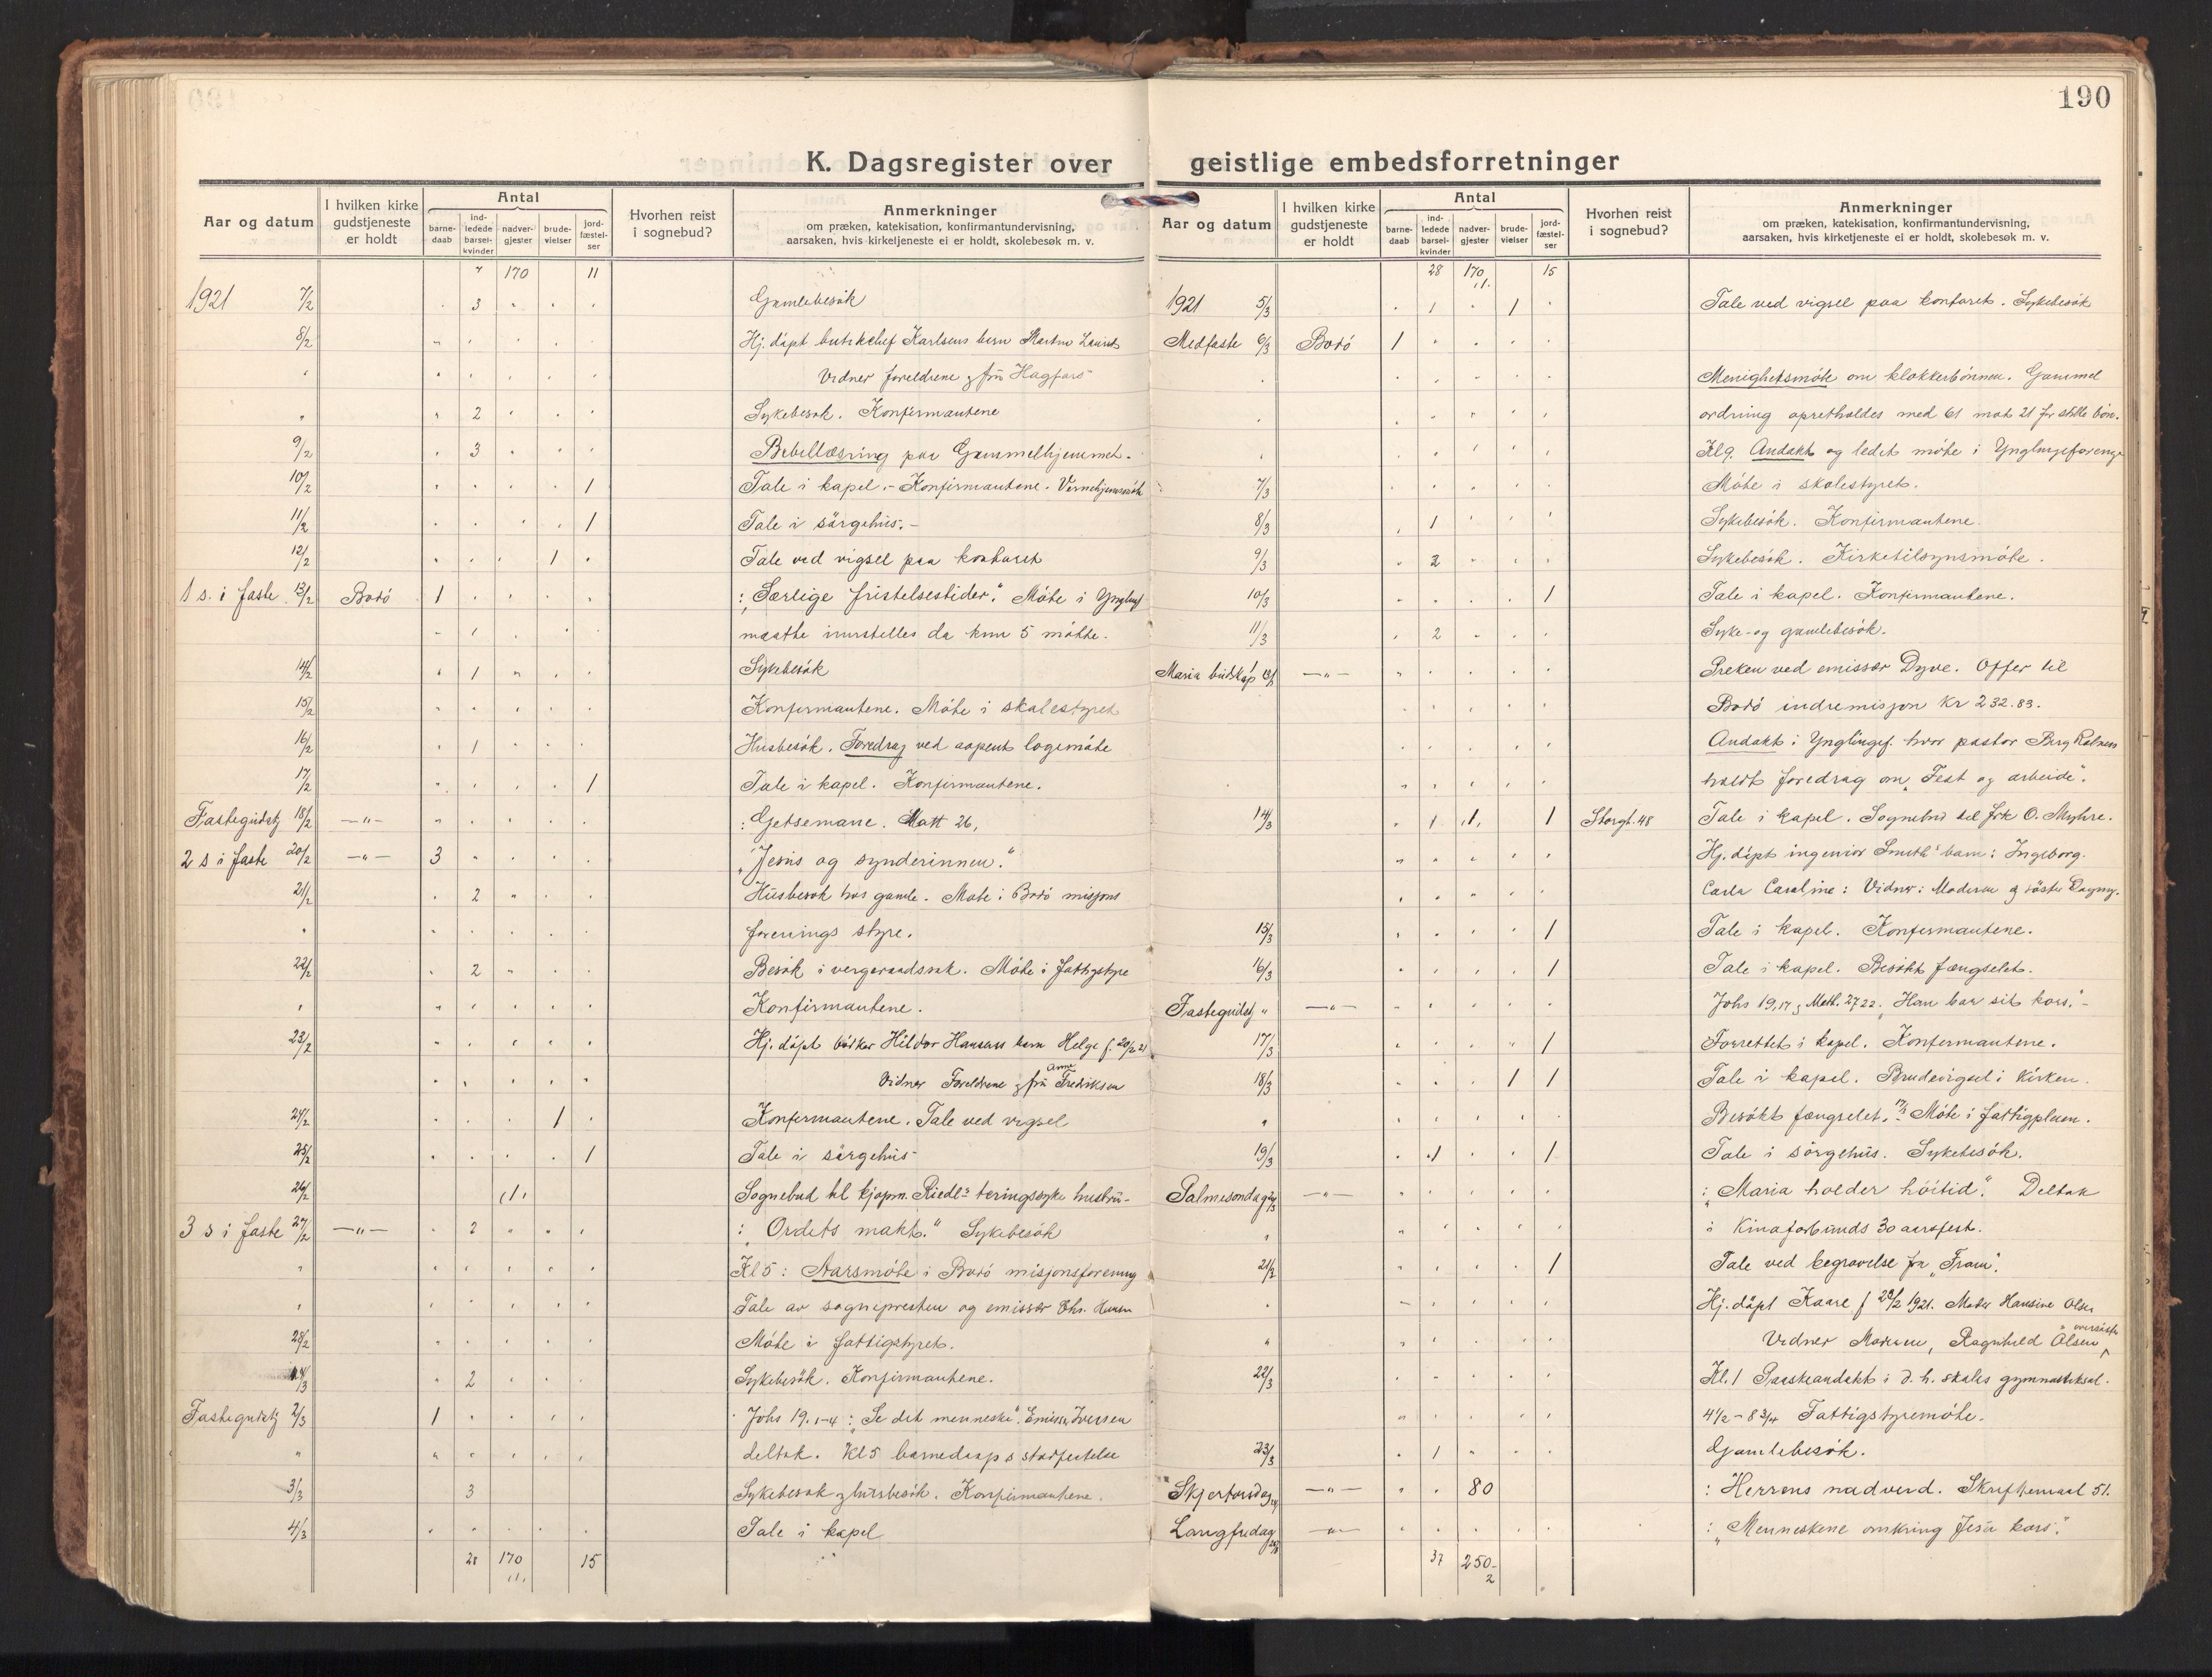 190
K. Dagsregister over geistlige embedsforretninger
Aar og datum
I hvilken kirke gudstjeneste er holdt
Antal
barne-daab
ind-ledede barsel-kvinder
nadver-gjester
brude-vielser
jord-fæstel-ser
Hvorhen reist i sognebud?
Anmerkninger
om præken, katekisation, konfirmantundervisning,
aarsaken, hvis kirketjeneste ei er holdt, skolebesøk m. v.
170 11
1921 7/2 3 Gamlebesök
8/2 Hj. döpt butikchef Karlsens barn Martin
Vidner foreldrene og fru Hagfors
2 Sykebesök. Konfirmantene
9/2 3 Bibellæsning paa Gammelhjemmet.
10/2 1 Tale i kapel. - Konfirmantene.
11/2 1 Tale i sörgehus. -
12/2 1 Tale ved vigsel paa kontoret
1 s. i faste 13/2 Bodö 1 : "Særlige fristelsestider." Möte i
1 maatte innstilles da kun 5 mötte.
14/2 1 Sykebesök
15/2 Konfirmantene. Möte i skolestyret
16/2 1 Husbesök. Foredrag ved aapent logemöte
17/2 1 Tale i kapel. Konfirmantene.
Fastegudstj 18/2 —"— : Getsemane. Matt 26,
2 s i faste 20/2 —"— 3 "Jesus og synderinnen."
21/2 2 Husbesök hos gamle. Möte i Bodö misjons
forenings styre.
22/2 2 Besök i vergeraadssak. Möte i fattigstyre
Konfirmantene.
23/2 Hj. döpt Hildor Hansens barn Helge f. 20/2 21
Vidner Foreldrene og fru Anna Fredriksen
24/2 1 Konfirmantene. Tale ved vigsel
25/2 1 Tale i sörgehus
26/2 1 Sognebud til kjöpm. Riedls tæringssyke hustru -
3 s i faste 27/2 —"— 2 : "Ordets makt." Sykebesök
Kl 5: Aarsmöte i Bodö misjonsforening
Tale av sognepresten og emissær Chr. Hansen
28/2 Möte i fattigstyret.
1/3 2 Sykebesök. Konfirmantene.
Fastegudstj 2/3 1 Johs 19. 1-4: "Se det menneske". Emissær Iversen
deltok. Kl 5 barnedaaps stadfestelse
3/3 3 Sykebesök og husbesök. Konfirmantene.
4/3 Tale i kapel
28 170 15
1
K. Dagsregister over geistlige embedsforretninger
Aar og datum
I hvilken kirke gudstjeneste er holdt
Antal
barne-daab
ind-ledede barsel-kvinder
nadver-gjester
brude-vielser
jord-fæstel-ser
Hvorhen reist i sognebud?
Anmerkninger
om præken, katekisation, konfirmantundervisning,
aarsaken, hvis kirketjeneste ei er holdt, skolebesøk m. v.
28 170 15
1
1921 5/3 1 1 Tale ved vigsel paa kontoret. Sykebesök
Midfaste 6/3 Bodö 1
Menighetsmöte om klokkerbönnen. Gammel
ordning opretholdes med 61 mot 21 for stille bön.
Kl 9. Andakt og ledet möte i Ynglingeforening
7/3 Möte i skolestyret.
8/3 1 Sykebesök. Konfirmantene.
9/3 2 Sykebesök. Kirketilsynsmöte.
10/3 1 Tale i kapel. Konfirmantene.
11/3 2 Syke- og gamlebesök.
Maria budskap 13/3 —"— Preken ved emissær Dyve. Offer til
Bodö indremisjon kr 232.83.
Andakt i Ynglingef. hvor pastor Berg
holdt foredrag om "Fest og arbeide".
14/3 1 1 1 Storgt. 48 Tale i kapel. Sognebud til frk O. Myhre.
Hj. döpt ingeniör Smith's barn: Ingeborg
Carla Caroline: Vidner: Moderen og söster Dagny.
15/3 1 Tale i kapel. Konfirmantene.
16/3 1 Tale i kapel. Besökt fængselet.
Fastegudstj " —"— Johs 19,17 og Math. 27 22. "Han bar sit kors." -
17/3 1 Forrettet i kapel. Konfirmantene.
18/3 1 1 Tale i kapel. Brudevigsel i kirken.
" Besökt fængselet. 17/3 Möte i fattigplein.
19/3 1 1 Tale i sörgehus. Sykebesök.
Palmesondag 20/3 —"— : "Maria holder höitid". Deltok
" i Kinaforbunds 30 aarsfest.
21/3 1 Tale ved begravelse fra "Fram".
Hj. döpt Kaare f 20/2 1921. Moder Hansine Olsen
" Vidner Moderen, Ragnhild Olsen
22/3 Kl. 1 Paaskeandakt i d. h. skoles gymnastiksal.
4 1/2 - 8 3/4 Fattigstyremöte.
23/3 1 Gamlebesök.
Skjertorsdag 24/3 —"— 80 : Herrens nadverd. Skriftemaal 51.
Langfredag 25/3 —"— : "Menneskene omkring Jesu kors."
37 250
2